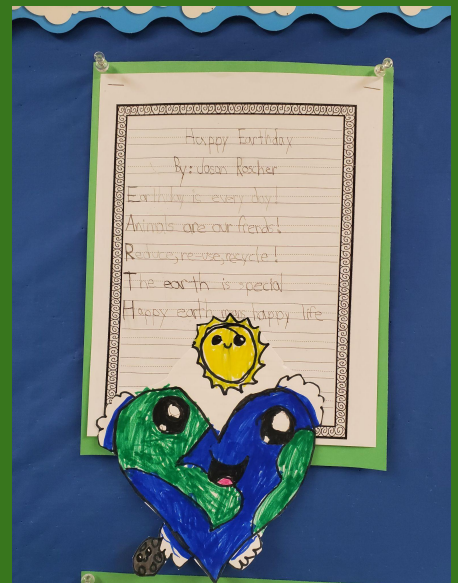 Happy Earthday
By: Jason Roscher
Earthday is every day!
Animals are our friends!
Reduce, re-use, recycle!
The earth is special
Happy earth happy life